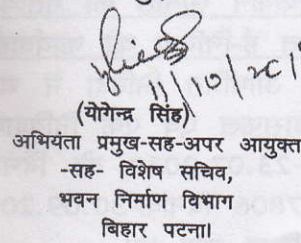 (योगेन्द्र सिंह)
अभियंता प्रमुख-सह-अपर आयुक्त
-सह- विशेष सचिव,
भवन निर्माण विभाग
बिहार पटना।